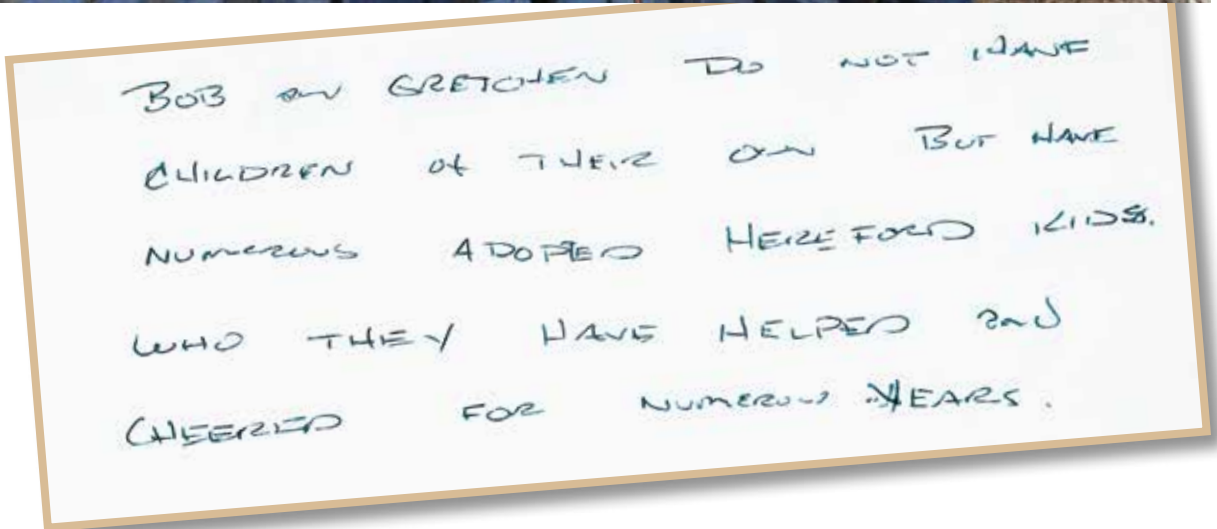 BOB an GRETCHEN DO NOT HAVE
CHILDREN of THEIR own BUT HAVE
NUMEROUS ADOPTED HEREFORD KIDS.
WHO THEY HAVE HELPED and
CHEERED FOR NUMEROUS YEARS.